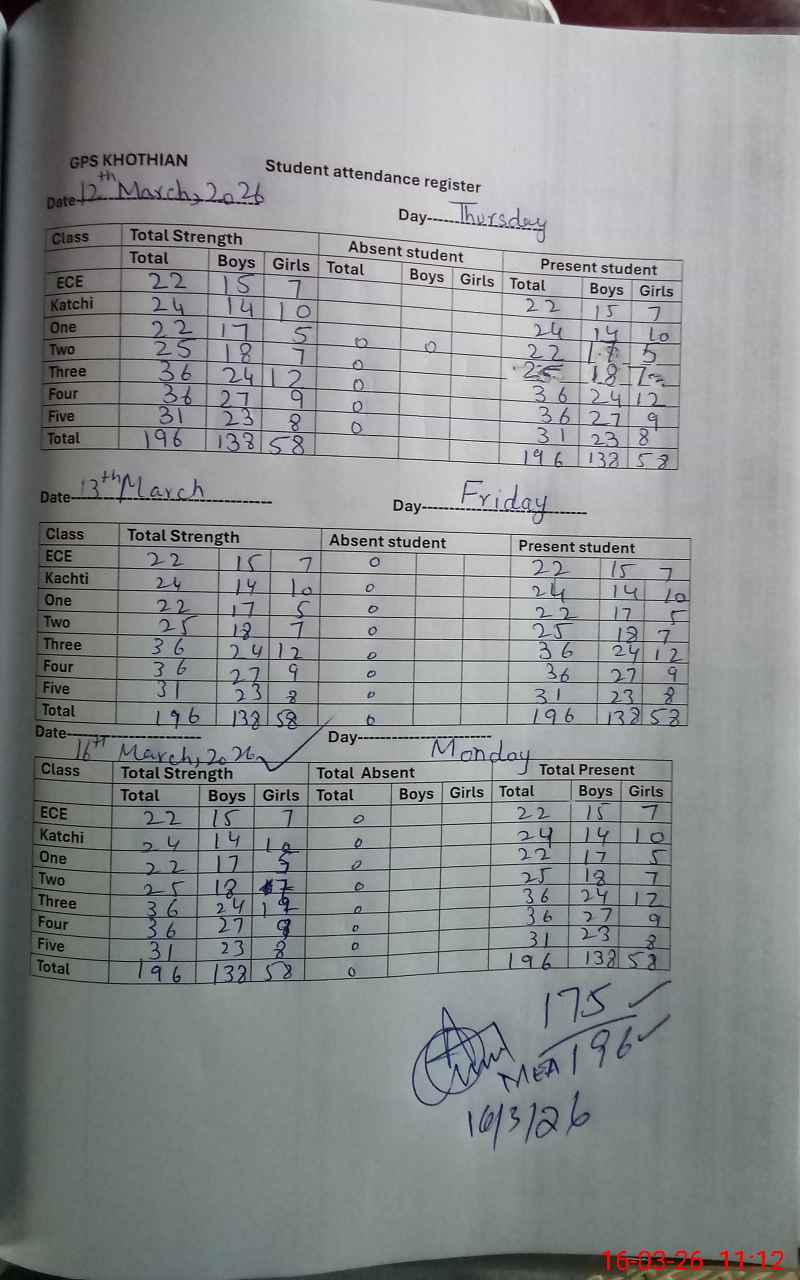 GPS KHOTHIAN Student attendance register
Date 12th March, 2026 Day Thursday
Class Total Strength Absent student Present student
Total Boys Girls Total Boys Girls Total Boys Girls
ECE 22 15 7 22 15 7
Katchi 24 14 10 24 14 10
One 22 17 5 0 0 22 17 5
Two 25 18 7 0 25 18 7
Three 36 24 12 0 36 24 12
Four 36 27 9 0 36 27 9
Five 31 23 8 0 31 23 8
Total 196 138 58 196 138 58
Date 13th March Day Friday
Class Total Strength Absent student Present student
ECE 22 15 7 0 22 15 7
Kachti 24 14 10 0 24 14 10
One 22 17 5 0 22 17 5
Two 25 18 7 0 25 18 7
Three 36 24 12 0 36 24 12
Four 36 27 9 0 36 27 9
Five 31 23 8 0 31 23 8
Total 196 138 58 0 196 138 58
Date 16th March, 2026 Day Monday
Class Total Strength Total Absent Total Present
Total Boys Girls Total Boys Girls Total Boys Girls
ECE 22 15 7 0 22 15 7
Katchi 24 14 10 0 24 14 10
One 22 17 5 0 22 17 5
Two 25 18 7 0 25 18 7
Three 36 24 12 0 36 24 12
Four 36 27 9 0 36 27 9
Five 31 23 8 0 31 23 8
Total 196 138 58 0 196 138 58
175
MEA 196
16/3/26
16-03-26 11:12